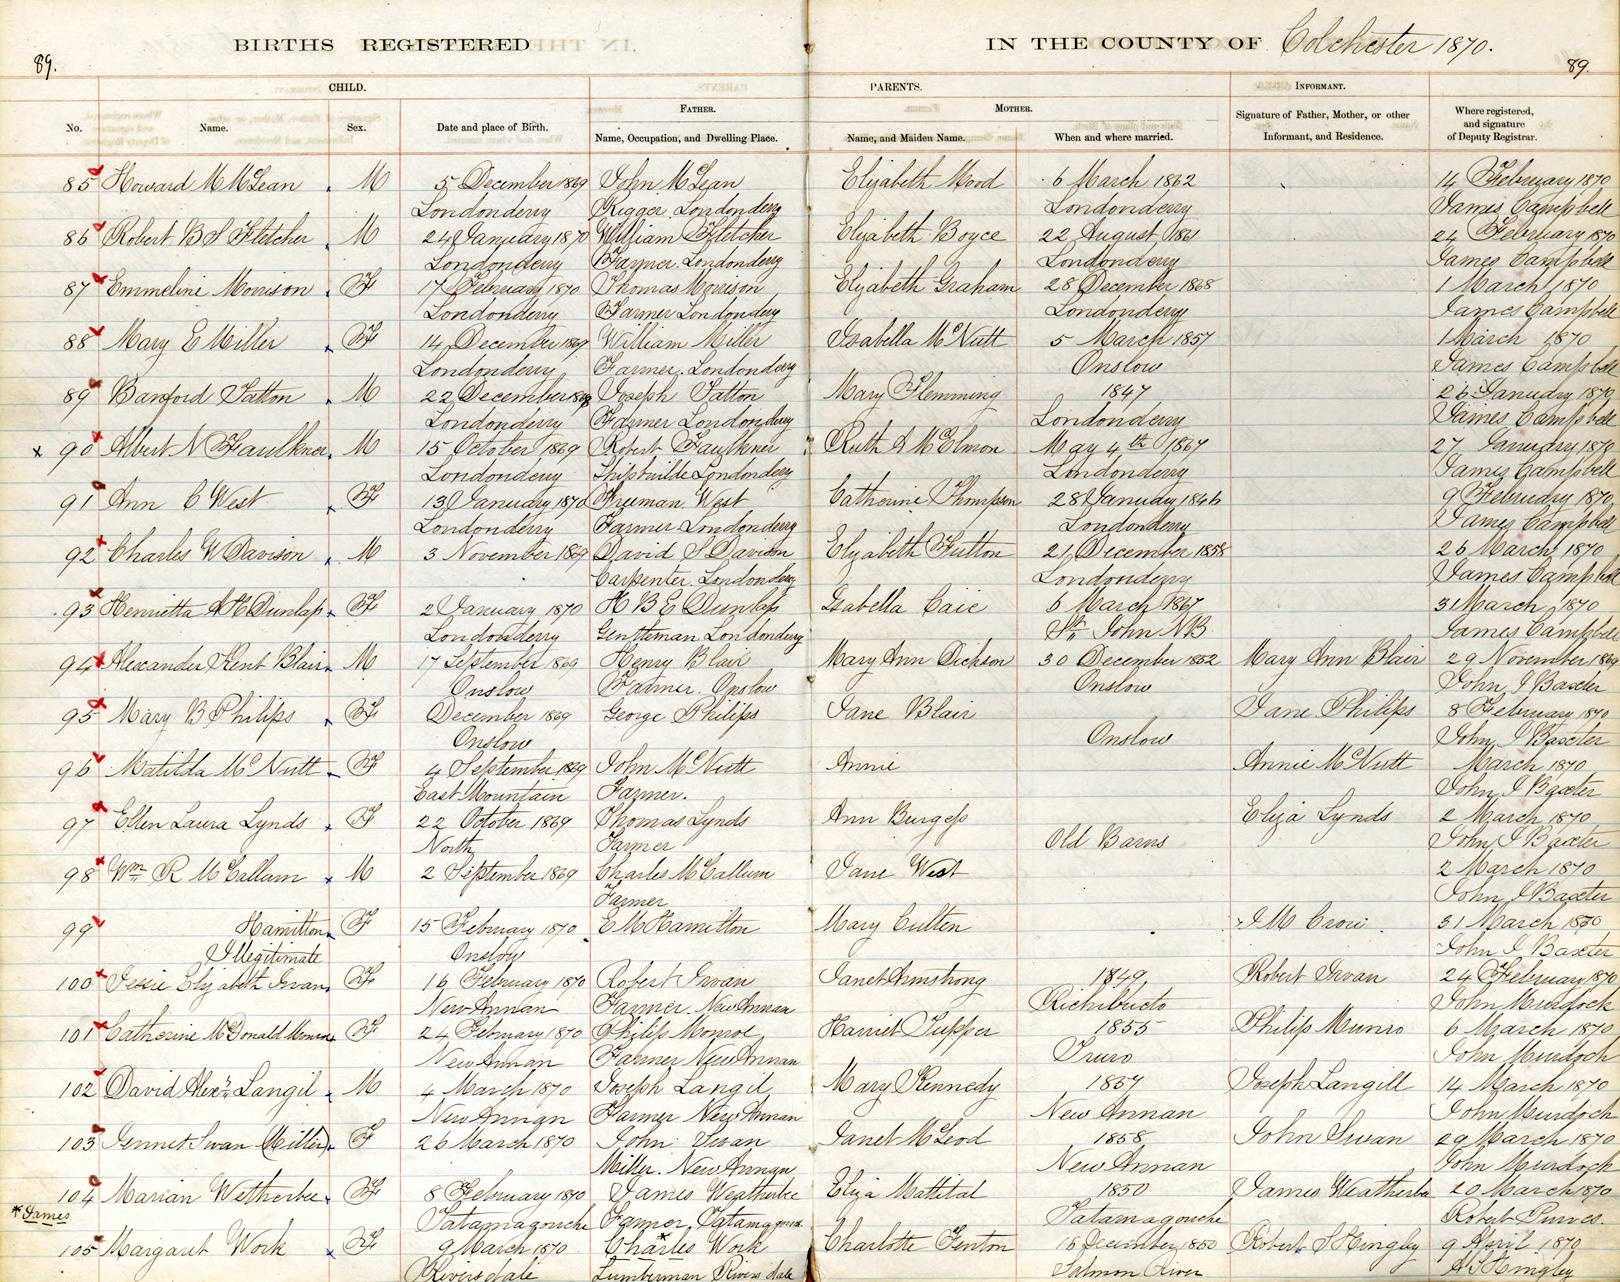 BIRTHS REGISTERED IN THE COUNTY OF Colchester 1870.
89. 89.
CHILD. PARENTS. INFORMANT.
FATHER. MOTHER.
No. Name. Sex. Date and place of Birth. Name, Occupation, and Dwelling Place. Name, and Maiden Name. When and where married. Signature of Father, Mother, or other Informant, and Residence. Where registered, and signature of Deputy Registrar.
85 Howard M McLean M 5 December 1869 John McLean Elizabeth Mood 6 March 1862 14 February 1870
Londonderry Rigger Londonderry Londonderry James Campbell
86 Robert B S Fletcher M 24 January 1870 William Fletcher Elizabeth Boyce 22 August 1861 24 February 1870
Londonderry Farmer. Londonderry Londonderry James Campbell
87 Emmeline Morrison F 17 February 1870 Thomas Morrison Elizabeth Graham 28 December 1868 1 March 1870
Londonderry Farmer Londonderry Londonderry James Campbell
88 Mary E Miller F 14 December 1869 William Miller Isabella McNutt 5 March 1857 1 March 1870
Londonderry Farmer. Londonderry Onslow James Campbell
89 Banford Tatton M 22 December Joseph Tatton Mary Flemming 1847 26 January 1870
Londonderry Farmer Londonderry Londonderry James Campbell
x 90 Albert N Faulkner M 15 October 1869 Robert Faulkner Ruth A McElmon May 4th 1867 27 January 1870
Londonderry Shipbuilder Londonderry Londonderry James Campbell
91 Ann C West F 13 January 1870 Freeman West Catherine Thompson 28 January 1846 9 February 1870
Londonderry Farmer Londonderry Londonderry James Campbell
92 Charles W Davison M 3 November 1869 David S Davison Elizabeth Fulton 21 December 1858 26 March 1870
Carpenter. Londonderry Londonderry James Campbell
93 Henrietta A H Dunlap F 2 January 1870 H B E Dunlap Isabella Caie 6 March 1867 31 March 1870
Londonderry Gentleman Londonderry St John NB James Campbell
94 Alexander Kent Blair M 17 September 1869 Henry Blair Mary Ann Dickson 30 December 1852 Mary Ann Blair 29 November 1869
Onslow Farmer. Onslow Onslow John I Baxter
95 Mary B Philips F December 1869 George Philips Jane Blair Jane Philips 8 February 1870
Onslow Onslow John I Baxter
96 Matilda McNutt F 4 September 1869 John McNutt Annie Annie McNutt March 1870
East Mountain Farmer. John I Baxter
97 Ellen Laura Lynds F 22 October 1869 Thomas Lynds Ann Burgess Eliza Lynds 2 March 1870
North Farmer Old Barns John I Baxter
98 Wm R McCallum M 2 September 1869 Charles McCallum Jane West 2 March 1870
Farmer John I Baxter
99 Hamilton F 15 February 1870 E M Hamilton Mary Culten I M Crow 31 March 1870
Illegitimate Onslow John I Baxter
100 Jessie Elizabeth Swan F 16 February 1870 Robert Swan Janet Armstrong 1849 Robert Swan 24 February 1870
New Annan Farmer New Annan Richibucto John Murdoch
101 Catherine McDonald Monroe F 24 February 1870 Philip Monroe Harriet Tupper 1855 Philip Munro 6 March 1870
New Annan Farmer New Annan Truro John Murdoch
102 David Alexr Langil M 4 March 1870 Joseph Langil Mary Kennedy 1857 Joseph Langill 14 March 1870
New Annan Farmer New Annan New Annan John Murdoch
103 Jennet Swan (Miller) F 26 March 1870 John Swan Janet McLeod 1858 John Swan 29 March 1870
Miller. New Annan New Annan John Murdoch
104 Marian Wetherbee F 8 February 1870 James Weatherbee Eliza Mattatal 1850 James Weatherbe 20 March 1870
*James Tatamagouche Farmer Tatamagouche Tatamagouche Robert Purves.
105 Margaret Work F 9 March 1870 *Charles Work Charlotte Fenton 16 December 1850 Robert S Hingley 9 April 1870
Riversdale Lumberman Riversdale Salmon River Hingley